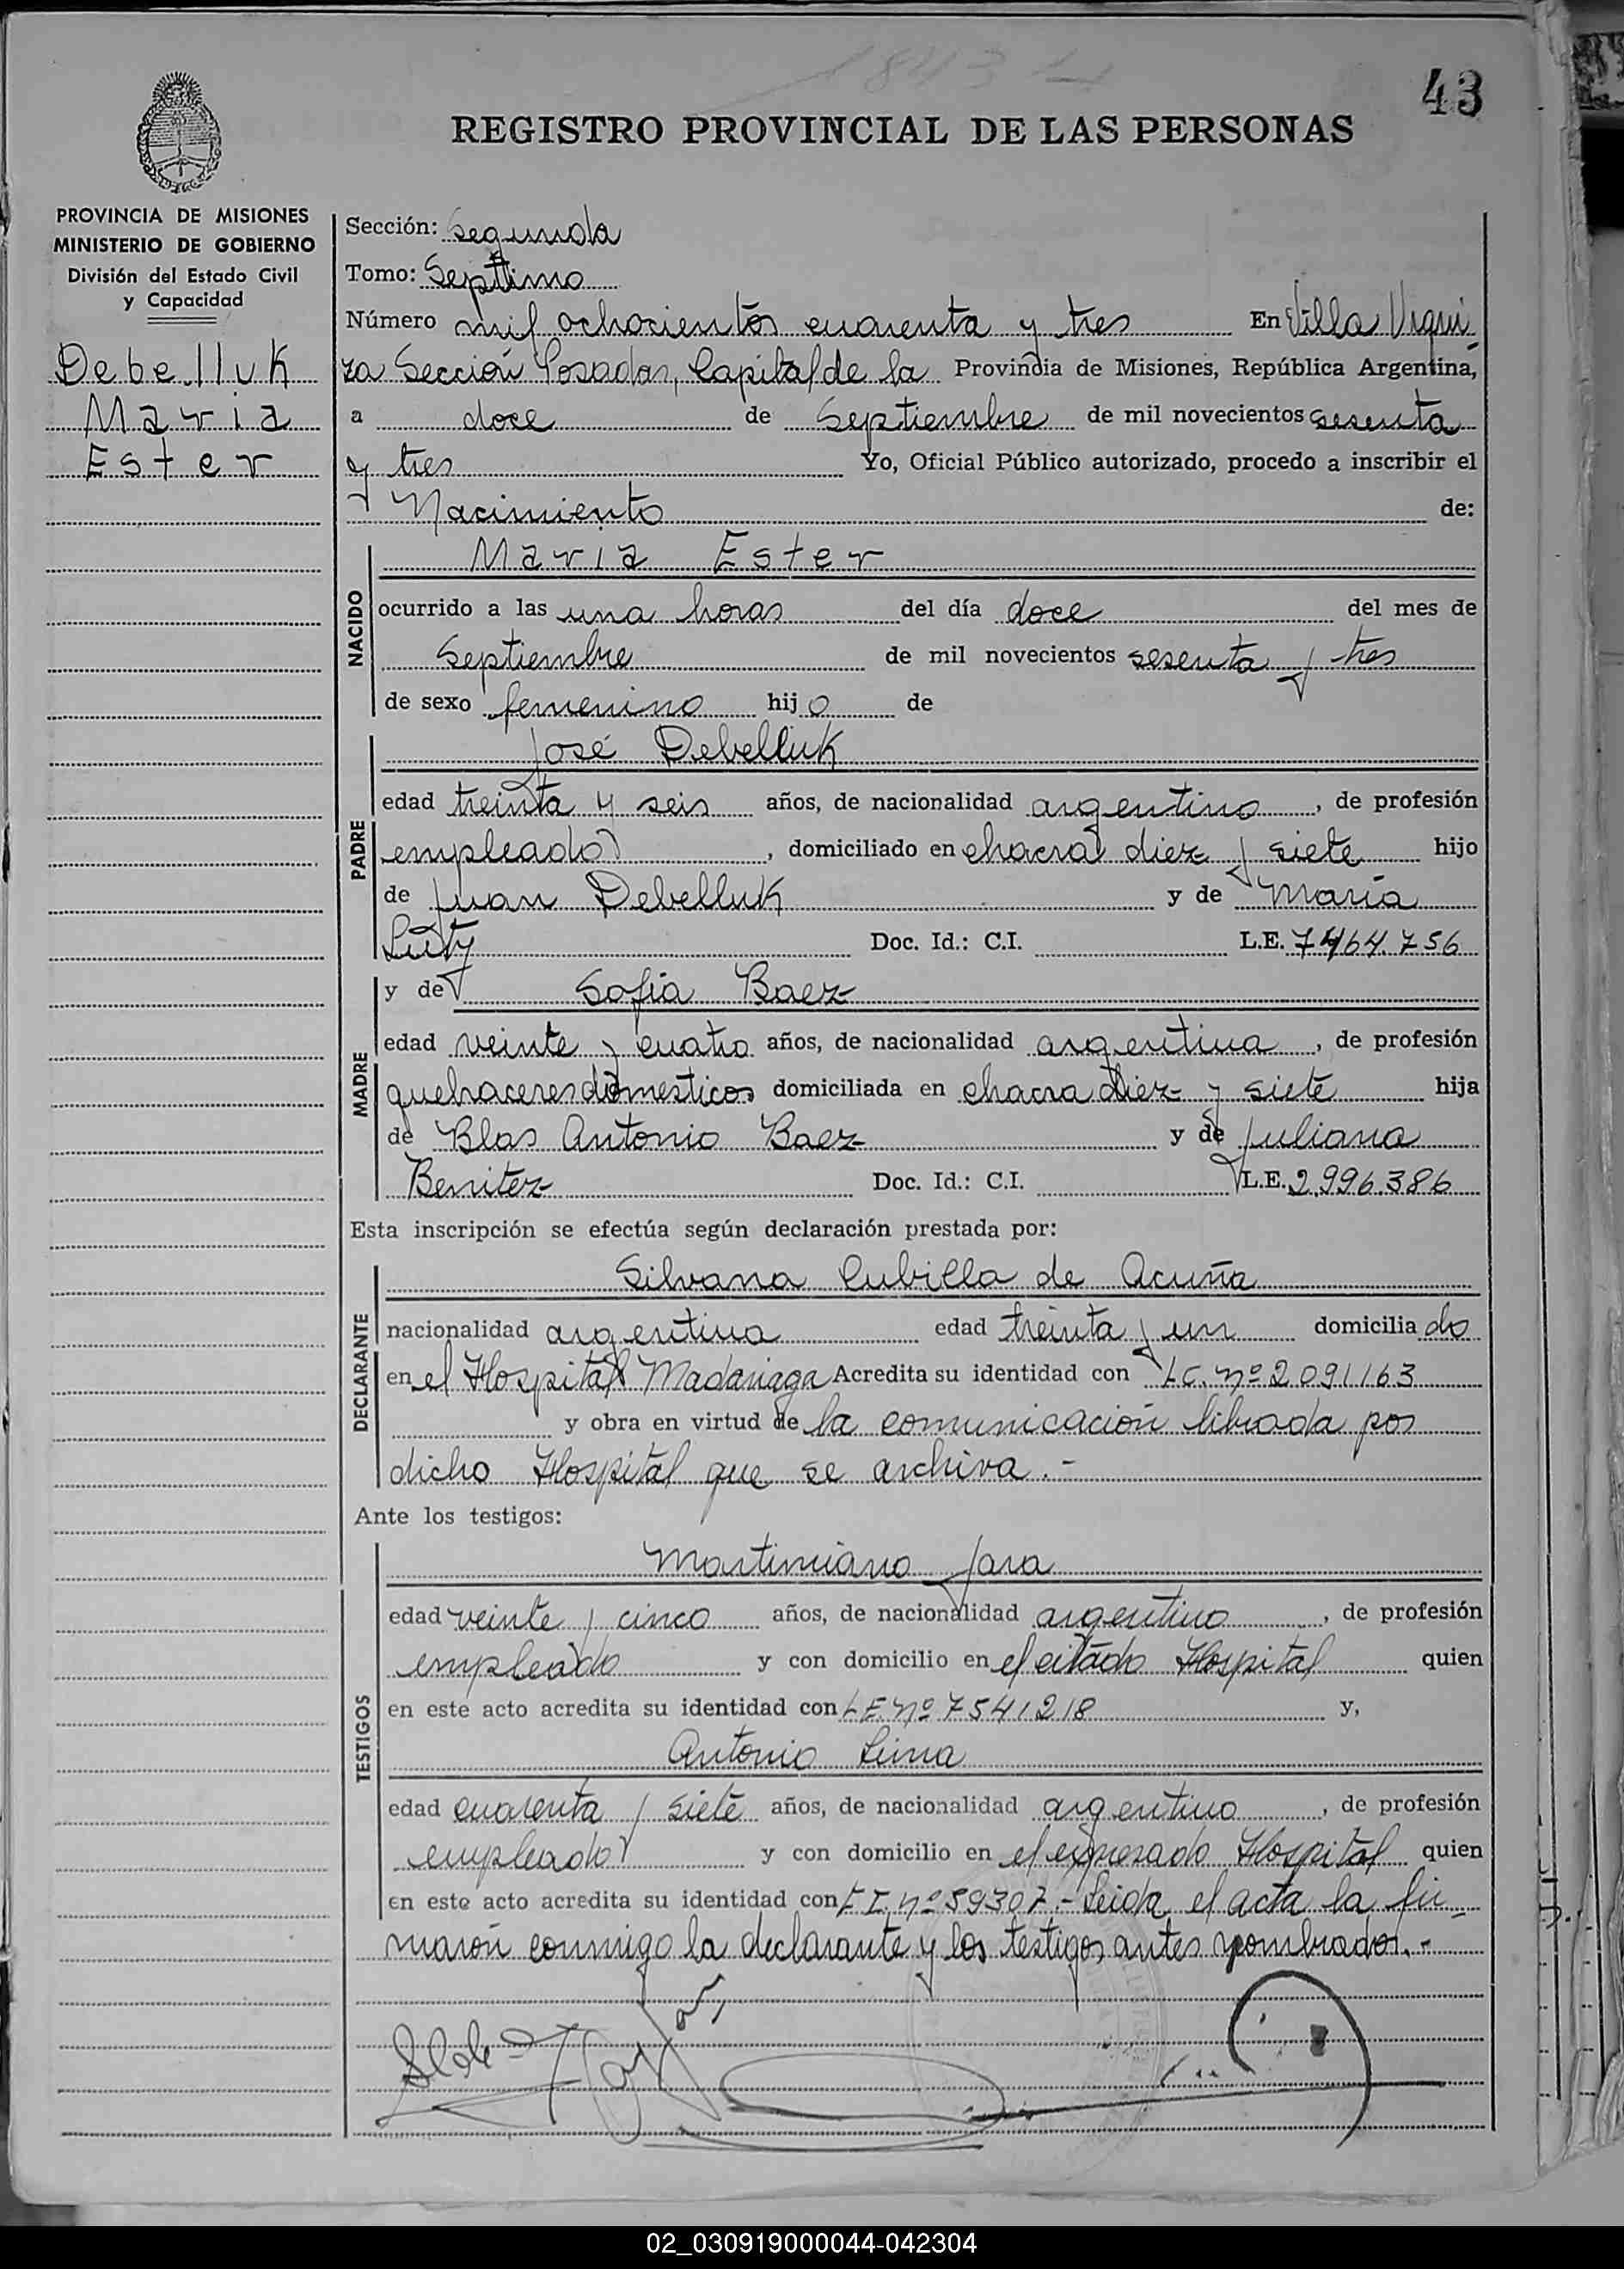 1843
43
REGISTRO PROVINCIAL DE LAS PERSONAS
PROVINCIA DE MISIONES
MINISTERIO DE GOBIERNO
División del Estado Civil
y Capacidad
Debelluk
Maria
Ester
Sección: Segunda
Tomo: Septimo
Número mil ochocientos cuarenta y tres En Villa Urqui-
za Sección Posadas, Capital de la Provincia de Misiones, República Argentina,
a doce de Septiembre de mil novecientos sesenta
y tres Yo, Oficial Público autorizado, procedo a inscribir el
Nacimiento de:
NACIDO
Maria Ester
ocurrido a las una horas del día doce del mes de
Septiembre de mil novecientos sesenta y tres
de sexo femenino hijo de
PADRE
José Debelluk
edad treinta y seis años, de nacionalidad argentino, de profesión
empleado, domiciliado en chacra diez y siete hijo
de Juan Debelluk y de María
Doc. Id.: C.I. L.E. 7464.756
MADRE
y de Sofia Baez
edad veinte y cuatro años, de nacionalidad argentina, de profesión
quehaceres domesticos domiciliada en chacra diez y siete hija
de Blas Antonio Baez y de Juliana
Benitez Doc. Id.: C.I. L.E. 2.996.386
Esta inscripción se efectúa según declaración prestada por:
DECLARANTE
Silvana Cubilla de Acuña
nacionalidad argentina edad treinta y un domiciliado
en el Hospital Madariaga Acredita su identidad con L.C. nº 2091163
y obra en virtud de la comunicación librada por
dicho Hospital que se archiva.-
Ante los testigos:
TESTIGOS
Martiniano Jara
edad veinte y cinco años, de nacionalidad argentino, de profesión
empleado y con domicilio en el citado Hospital quien
en este acto acredita su identidad con L.E. nº 7541218 y,
Antonio Lima
edad cuarenta y siete años, de nacionalidad argentino, de profesión
empleado y con domicilio en el expresado Hospital quien
en este acto acredita su identidad con nº 59307.- Leida el acta la fir-
maron conmigo la declarante y los testigos antes nombrados.-
02_030919000044-042304